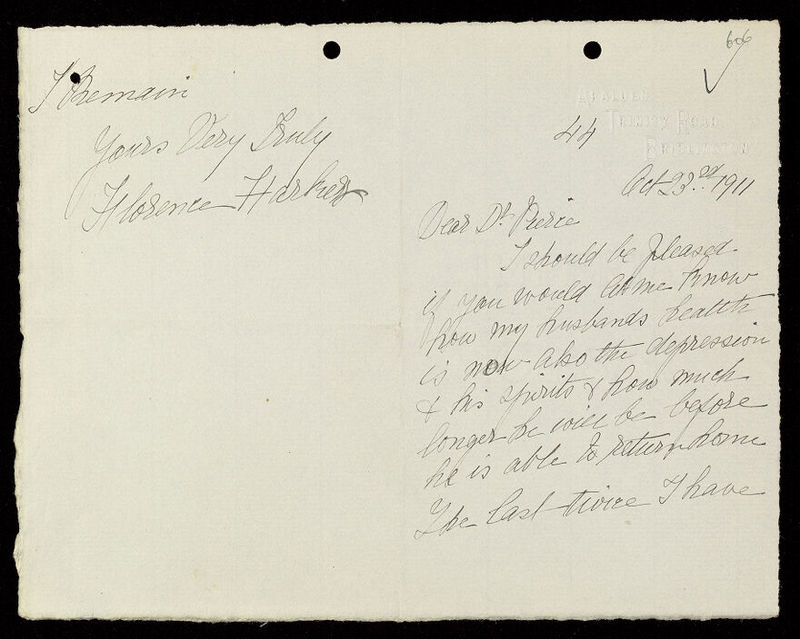 606
44
Trinity Road
Bridlington
Oct 23rd 1911
Dear Dr Pierce
I should be pleased
if you would let me know
how my husbands health
is now also the depression
& his spirits & how much
longer he will be before
he is able to return home
The last twice I have
I Remain
Yours Very Truly
Florence Harker